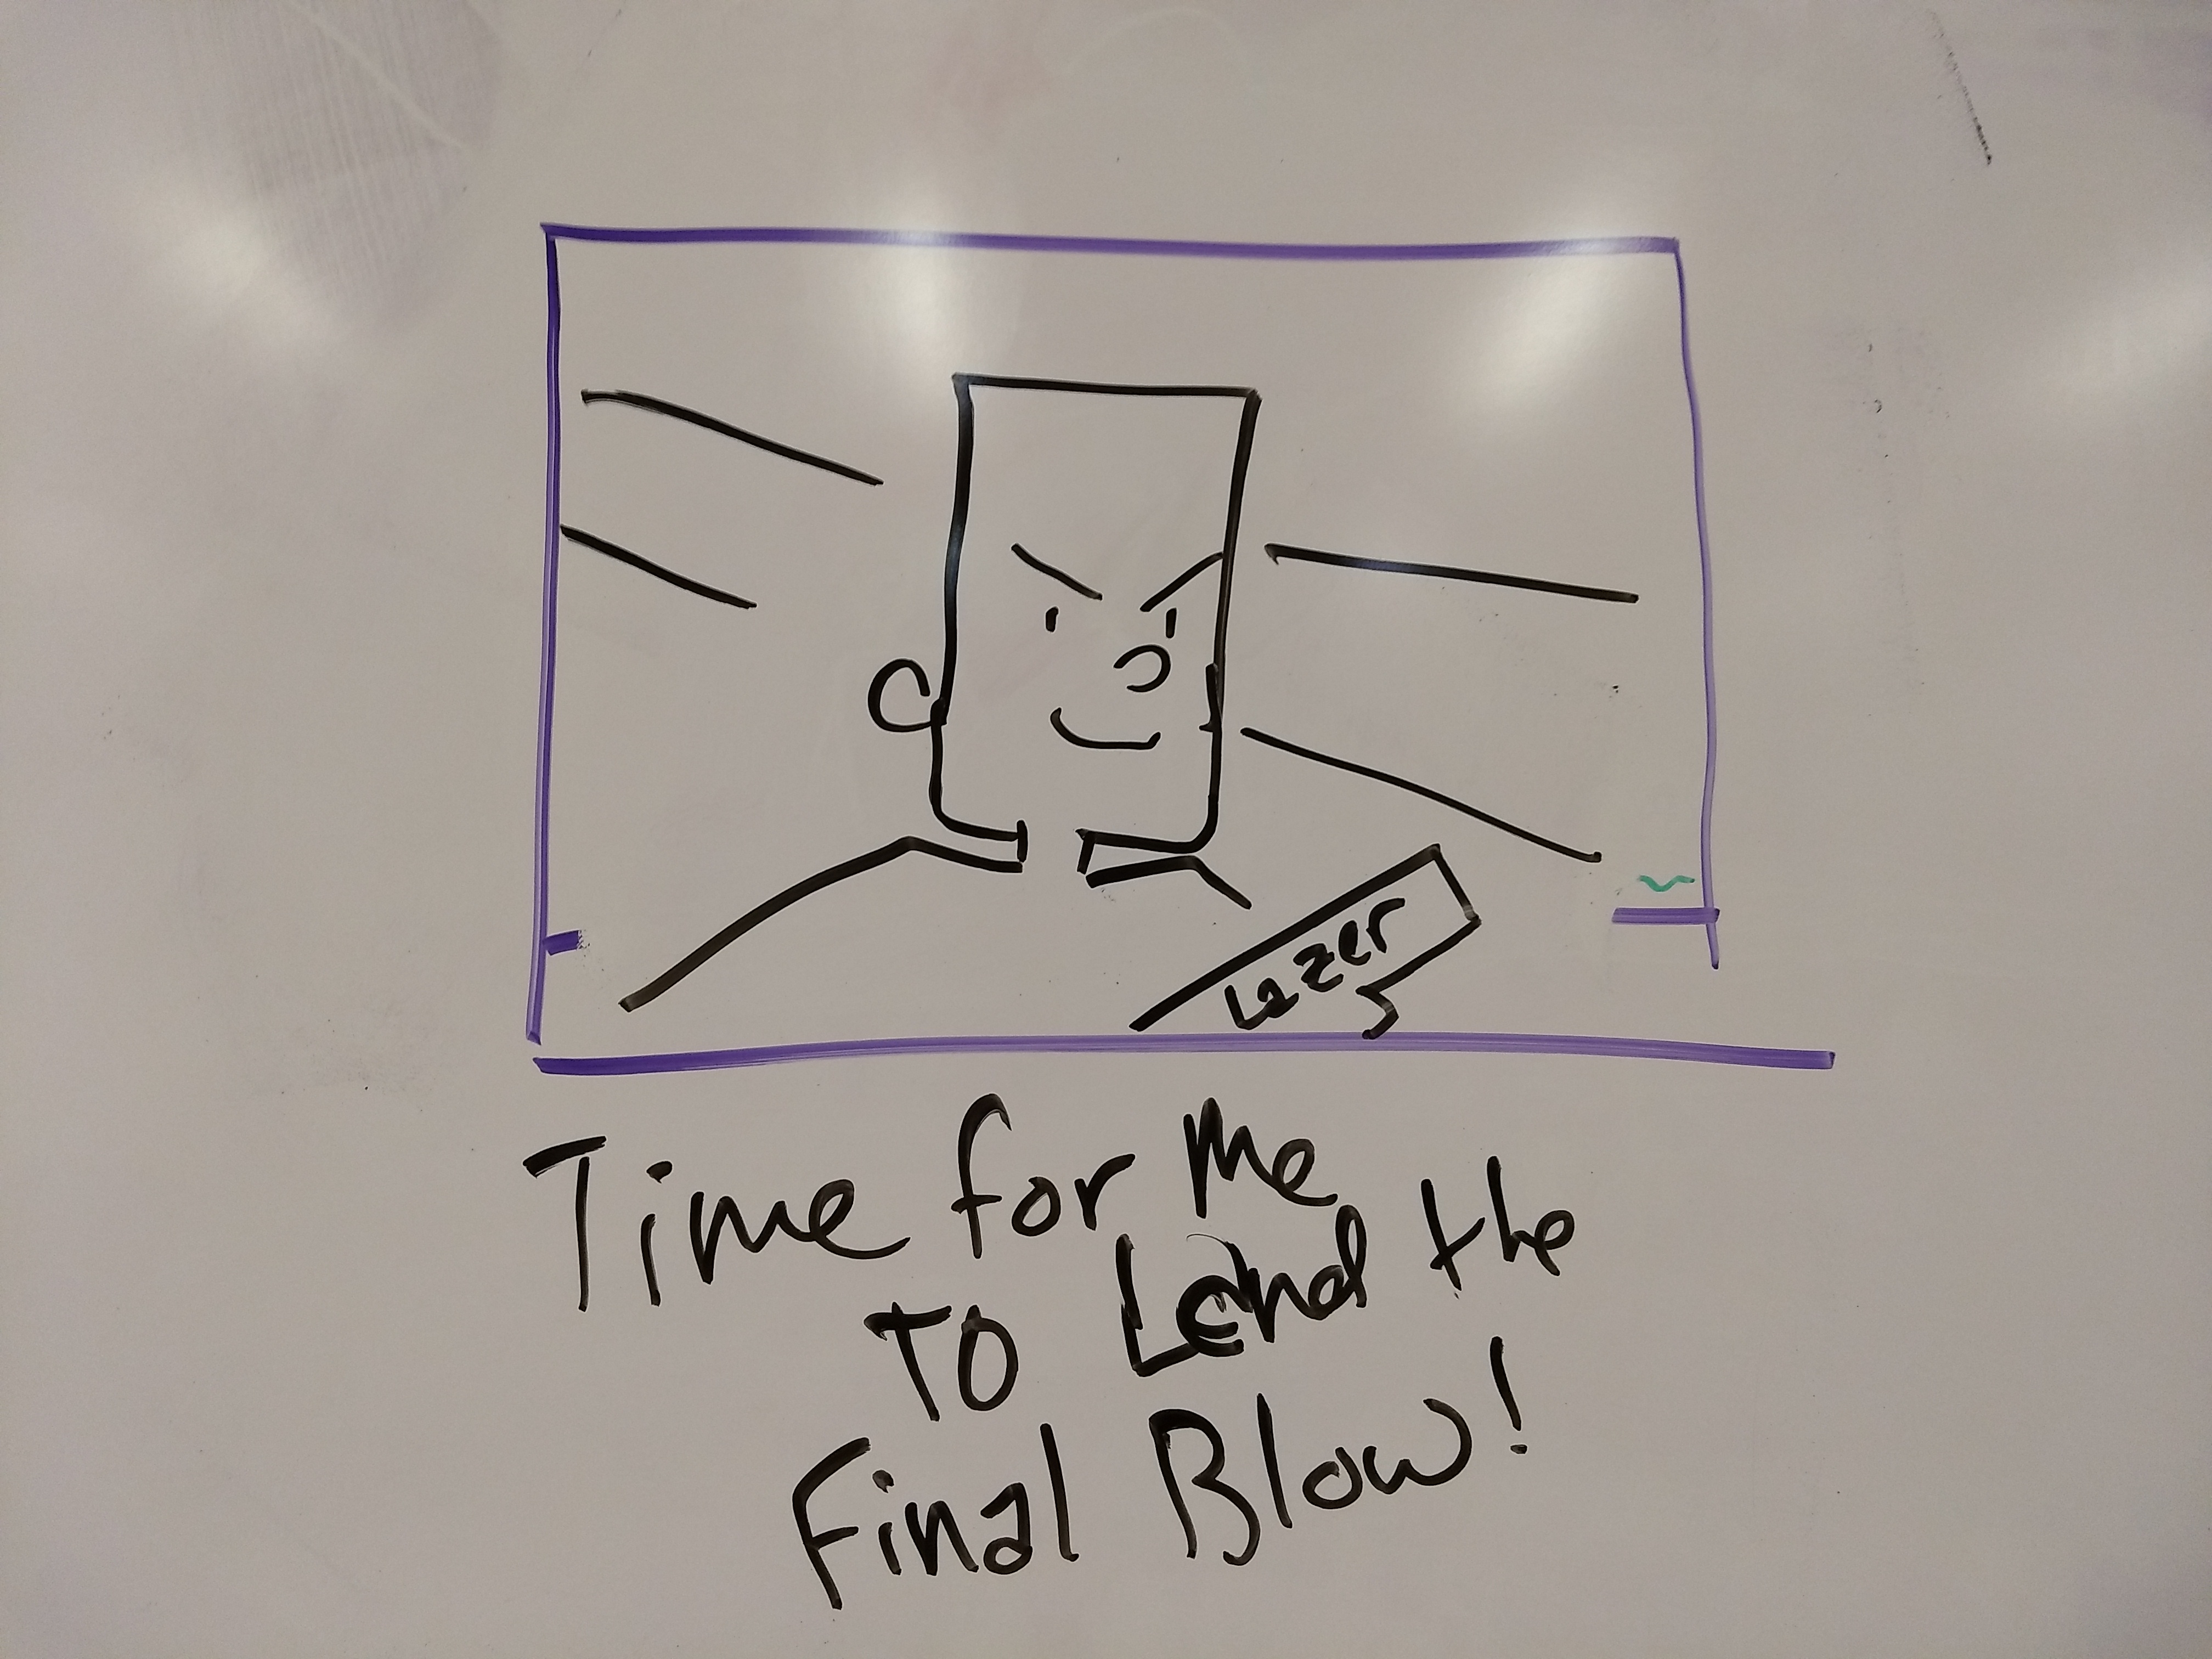 Lazer
Time for Me
To Land the
Final Blow!